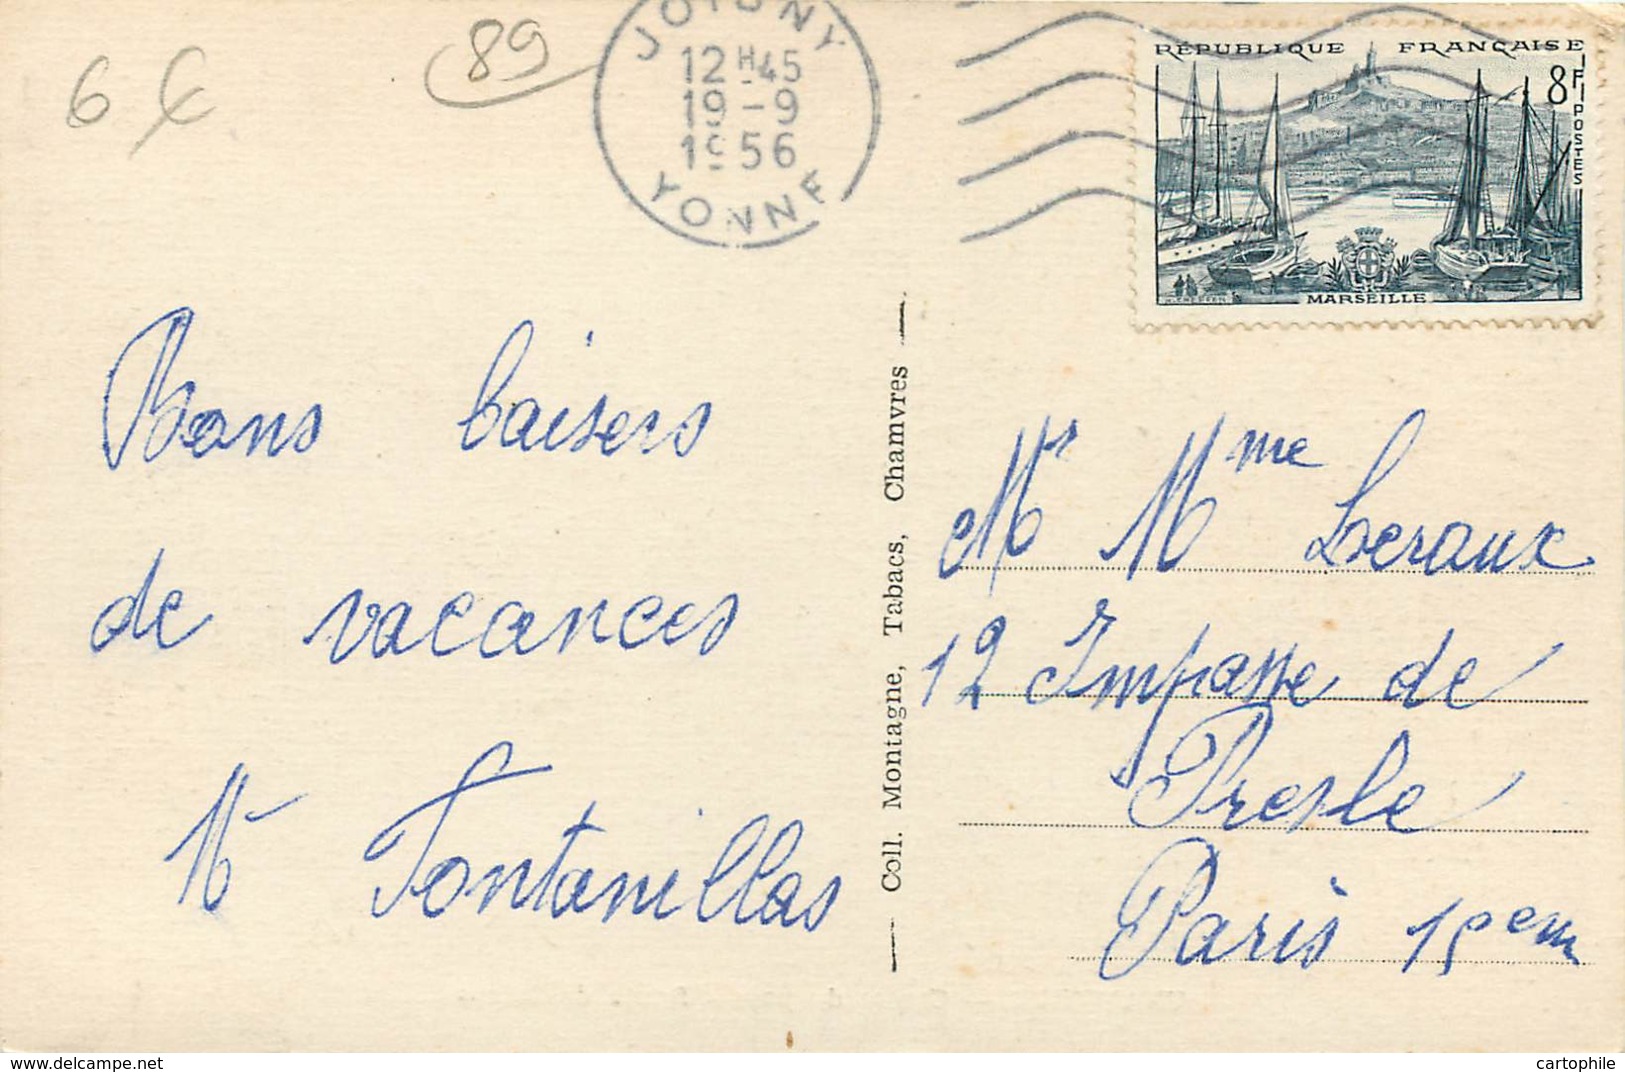 6 €
89
JOIGNY
12H45
19-9
1956
YONNE
RÉPUBLIQUE FRANÇAISE
8F
POSTES
MARSEILLE
Bons baisers
de vacances
M Fontanillas
Coll. Montagne, Tabacs, Chamvres
Mr Mme Leraux
12 Impasse de
Presle
Paris 15em
www.delcampe.net
cartophile